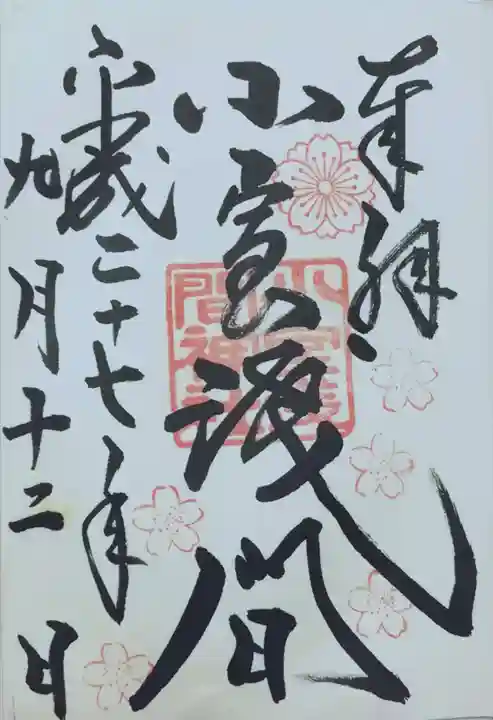 奉拝
小室浅間
平成二十七年
九月十二日